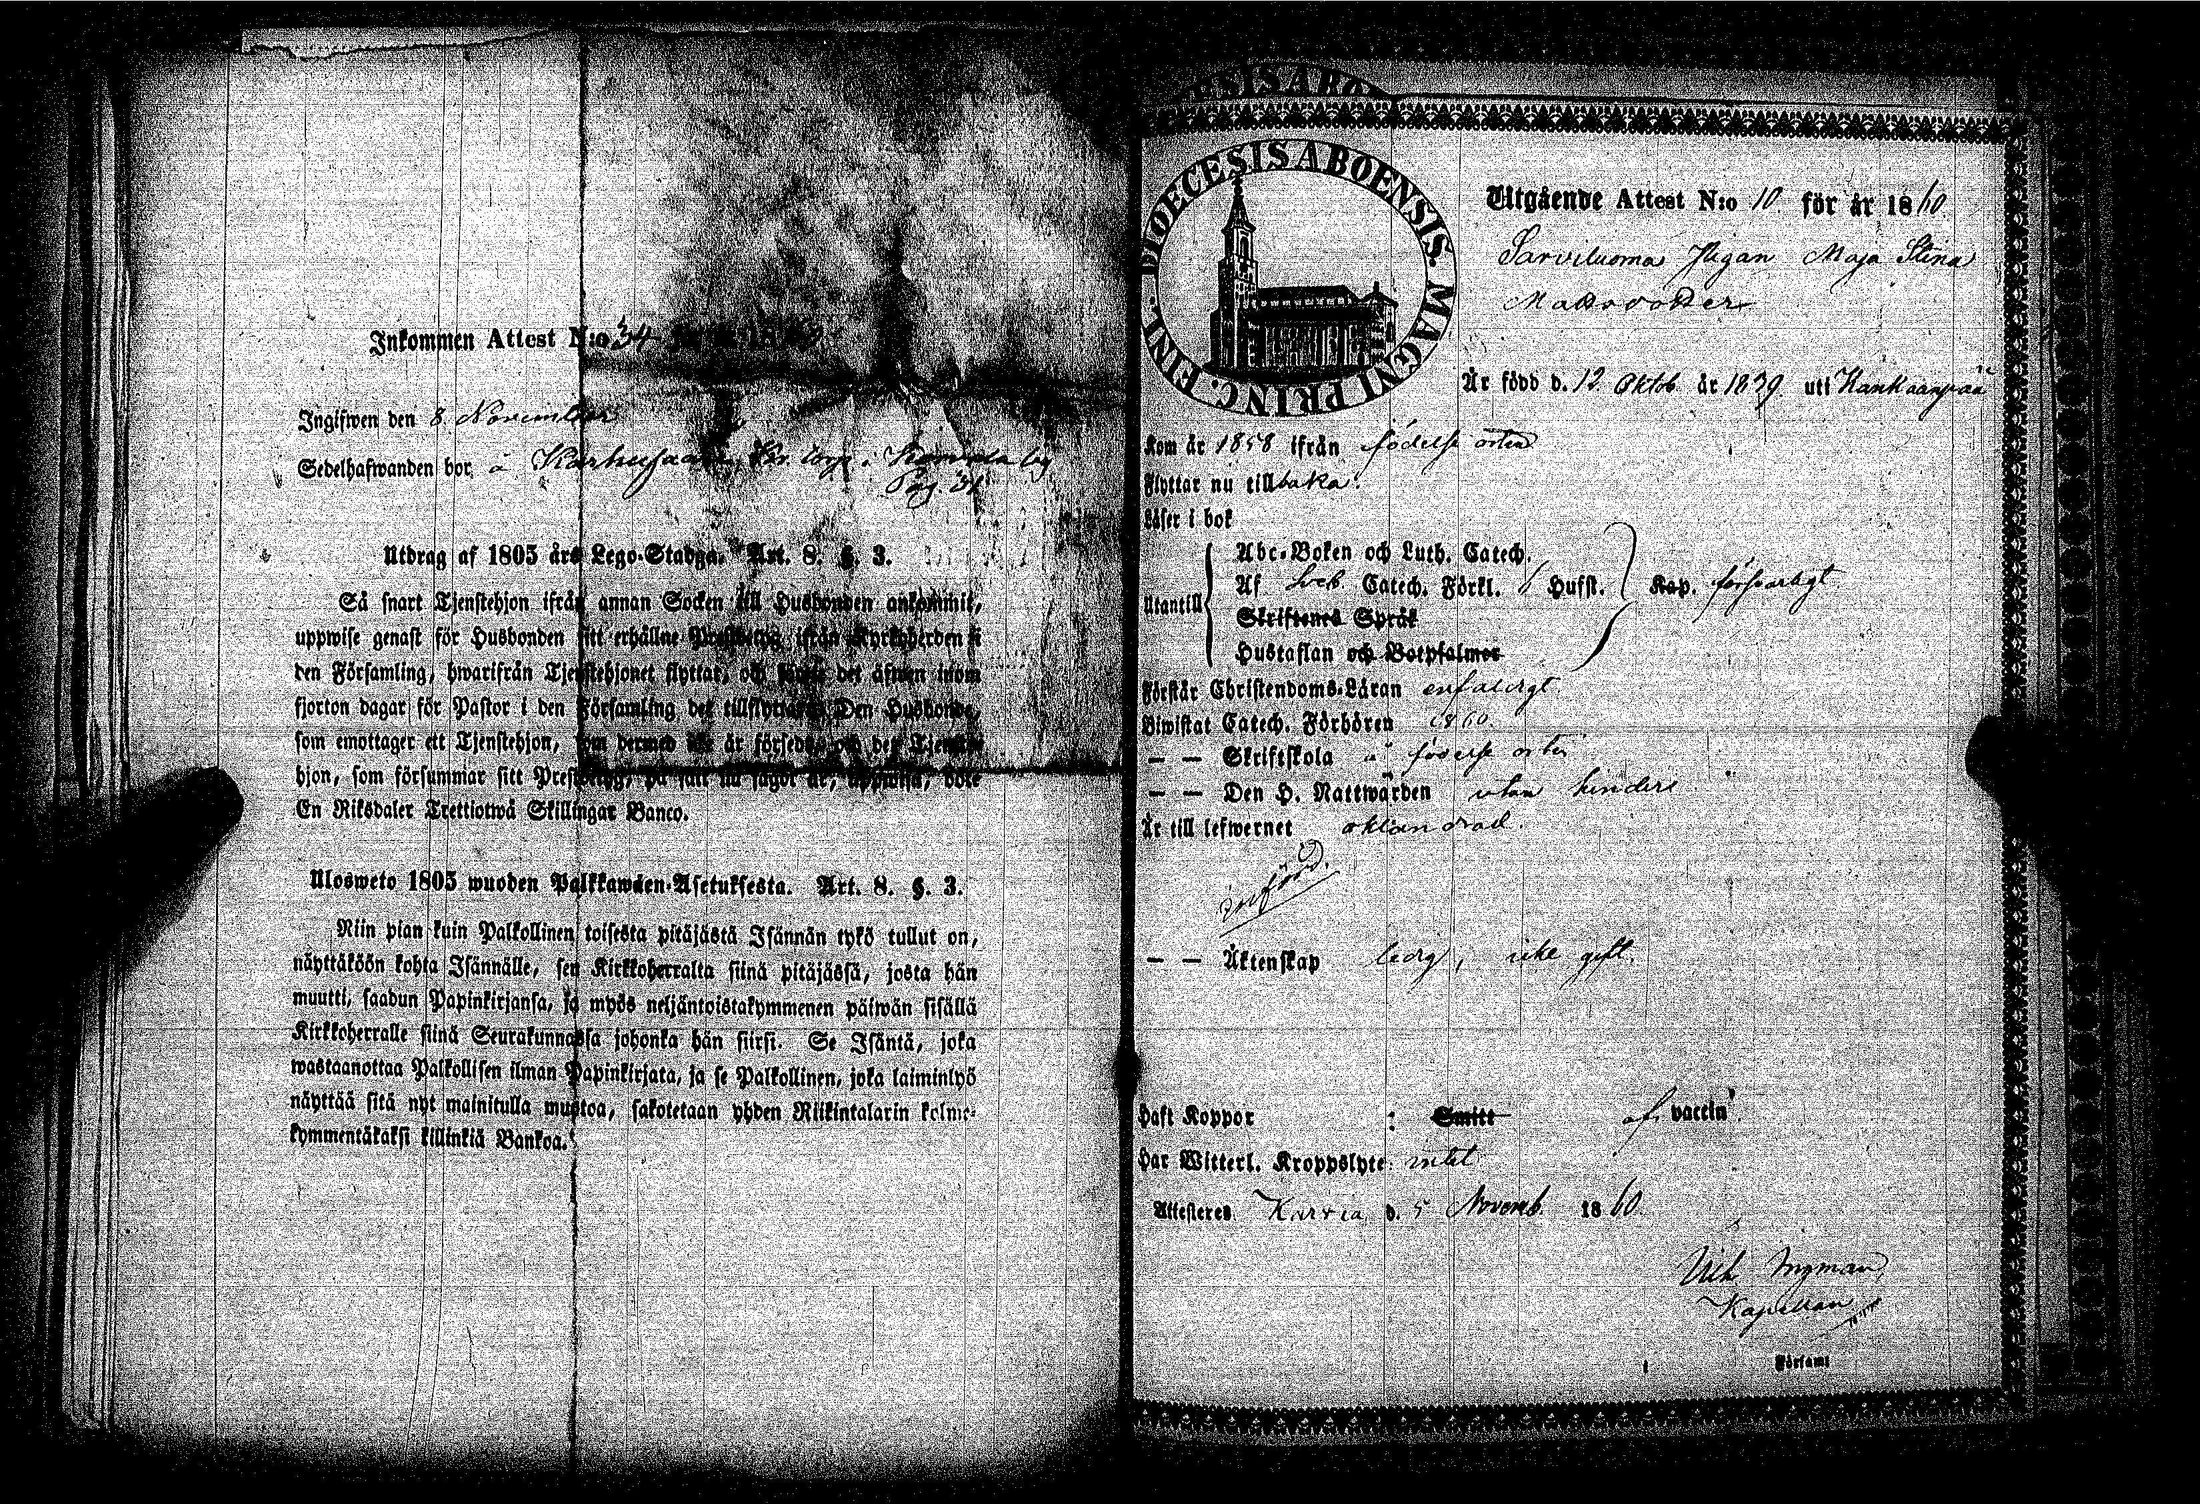 Inkommen Attest N:o 34
Ingifwen den 8 November
Sedelhafwanden bor, å
Pag.
Utdrag af 1805 års Lego-Stadga. Art. 8. §. 3.
Så snart Tjenstehjon ifrån annan Socken till Husbonden ankommit,
uppwise genast för Husbonden sitt erhållne Prestbetyg ifrån Kyrkoherden i
den Församling, hwarifrån Tjenstehjonet flyttat, och det äfwen inom
fjorton dagar för Pastor i den Församling det tillflyttat. Den Husbonde,
som emottager ett Tjenstehjon, som dermed icke är försedt, och det Tjenste-
hjon, som försummar sitt Prestbetyg, på sätt nu sagdt är, uppwisa, böte
En Riksdaler Trettiotwå Skillingar Banco.
Ulosweto 1805 wuoden Palkkawäen-Asetuksesta. Art. 8. §. 3.
Niin pian kuin Palkollinen toisesta pitäjästä Isännän tykö tullut on,
näyttäköön kohta Isännälle, sen Kirkkoherralta siinä pitäjässä, josta hän
muutti, saadun Papinkirjansa, ja myös neljäntoistakymmenen päiwän sisällä
Kirkkoherralle siinä Seurakunnassa johonka hän siirsi. Se Isäntä, joka
wastaanottaa Palkollisen ilman Papinkirjata, ja se Palkollinen, joka laiminlyö
näyttää sitä nyt mainitulla muotoa, sakotetaan yhden Riikintalarin kolme-
kymmentäkaksi killinkiä Bankoa.
DIOECESIS ABOENSIS. MAGNI PRINC. FINL.
Utgående Attest N:o 10 för år 1860
Sarviluoma Pigan Maja Stina
Mattsdotter
Är född d. 12 Oktob. år 1839 uti Kankaanpää
Kom år 1858 ifrån födelse orten
Flyttar nu tillbaka.
Läser i bok
Utantill
Abc-Boken och Luth. Catech.
Af Sveb. Catech. Förkl. 6 Hufst. Kap. försvarligt
Skriftenes Språk
Hustaflan och Botpsalmer
Förstår Christendoms-Läran enfaldigt
Biwistat Catech. Förhören 1860.
— — Skriftskola å födelse orten
— — Den H. Nattwarden utan hinder
Är till lefwernet oklandrad.
införd.
— — Äktenskap ledig, icke gift.
Haft Koppor : Smitt af vaccin
Har Witterl. Kroppslyte: intet
Attesteres Karvia d. 5 Novemb. 1860.
Ingman
Kapellan
i Församl